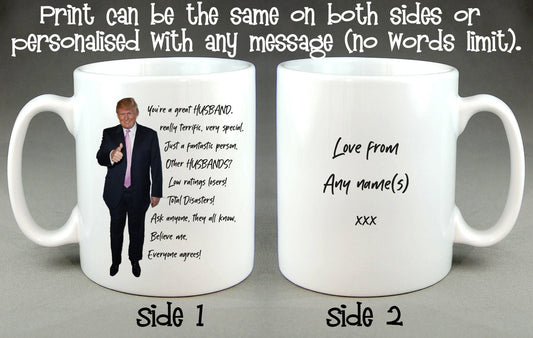 Print can be the same on both sides or
personalised with any message (no words limit).
You're a great HUSBAND.
really terrific, very special.
Just a fantastic person.
Other HUSBANDS?
Low ratings losers!
Total Disasters!
Ask anyone, they all know.
Believe me,
Everyone agrees!
Love from
Any name(s)
xxx
side 1
side 2